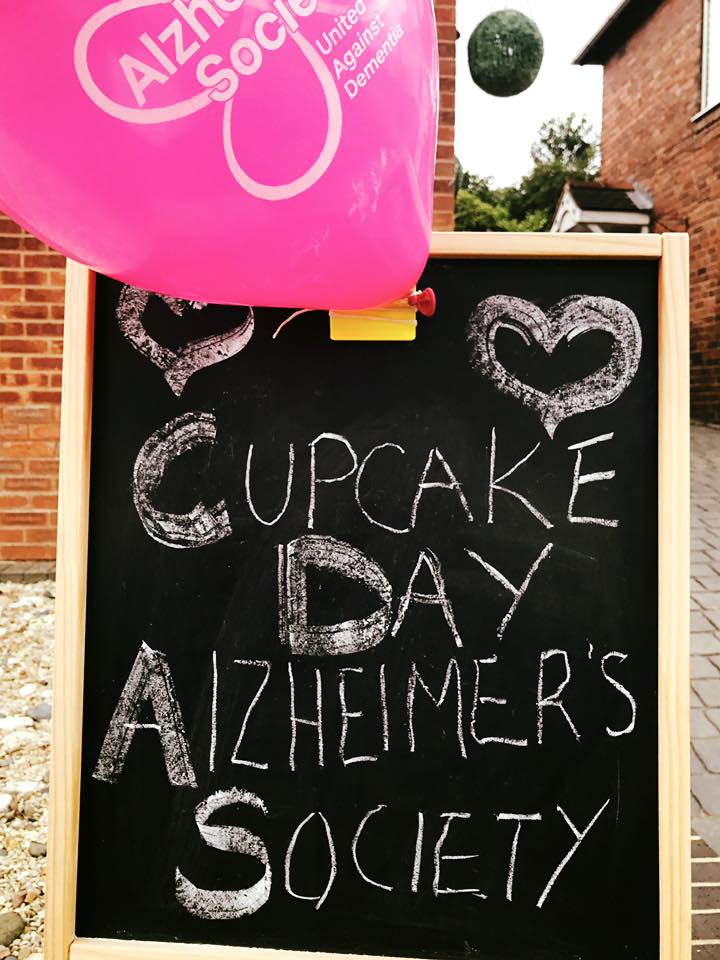 Alzhe
Socie
United
Against
Dementia
CUPCAKE
DAY
ALZHEIMER'S
SOCIETY